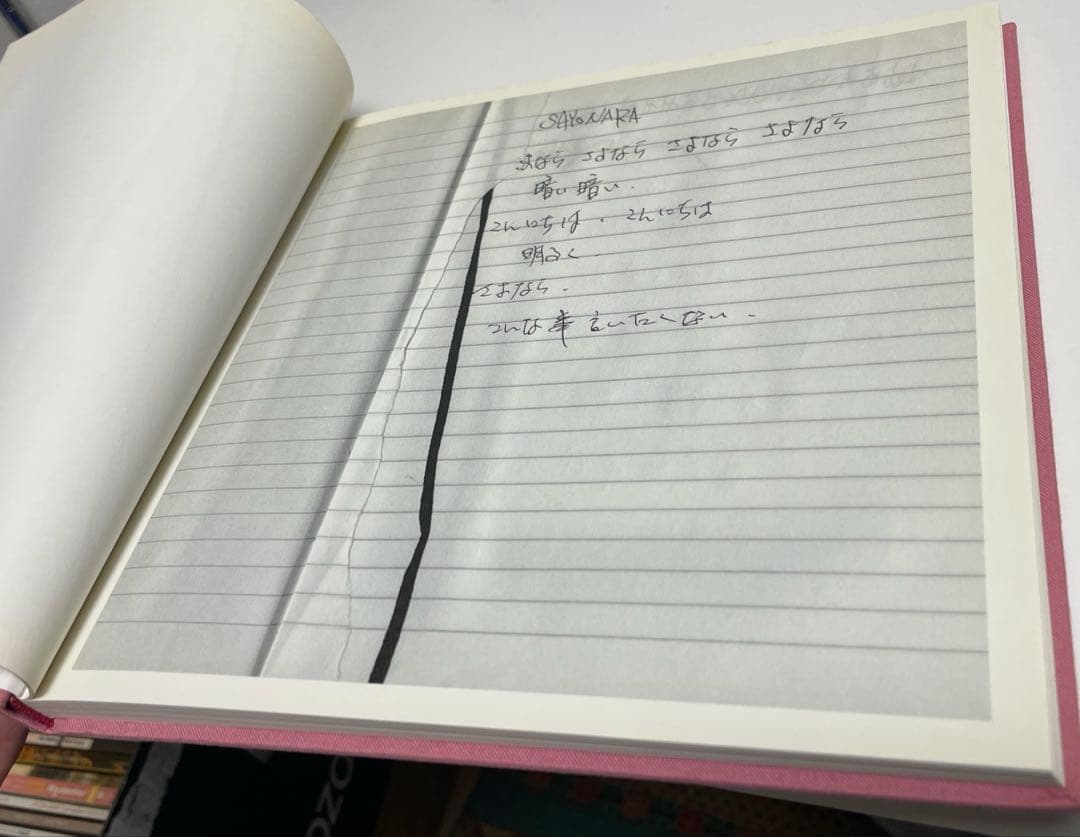 SAYONARA
さよなら さよなら さよなら さよなら
暗い 暗い.
こんにちは. こんにちは
明るく.
さよなら.
こんな事 言いたくない.
OZO